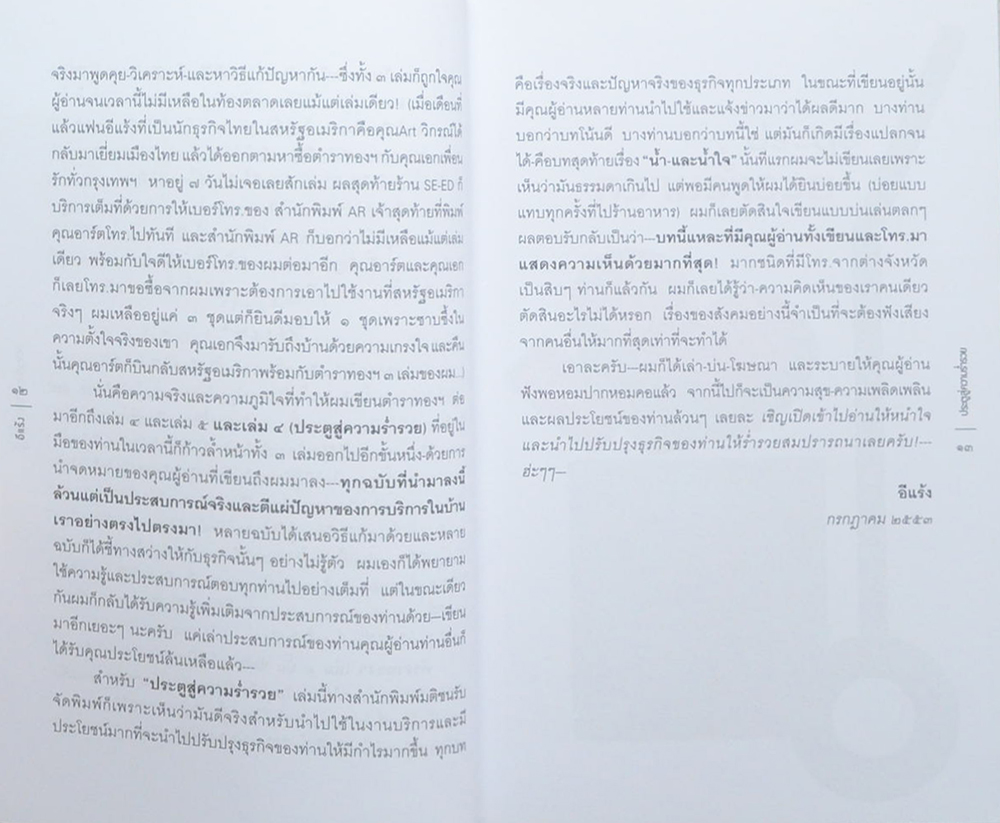 จริงมาพูดคุย-วิเคราะห์-และหาวิธีแก้ปัญหากัน---ซึ่งทั้ง ๓ เล่มก็ถูกใจคุณ
ผู้อ่านจนเวลานี้ไม่มีเหลือในท้องตลาดเลยแม้แต่เล่มเดียว! (เมื่อเดือนที่
แล้วแฟนอีแร้งที่เป็นนักธุรกิจไทยในสหรัฐอเมริกาคือคุณArt วิกรณ์ได้
กลับมาเยี่ยมเมืองไทย แล้วได้ออกตามหาซื้อตำราทองฯ กับคุณเอกเพื่อน
รักทั่วกรุงเทพฯ หาอยู่ ๗ วันไม่เจอเลยสักเล่ม ผลสุดท้ายร้าน SE-ED ก็
บริการเต็มที่ด้วยการให้เบอร์โทร.ของ สำนักพิมพ์ AR เจ้าสุดท้ายที่พิมพ์
คุณอาร์ตโทร.ไปทันที และสำนักพิมพ์ AR ก็บอกว่าไม่มีเหลือแม้แต่เล่ม
เดียว พร้อมกับใจดีให้เบอร์โทร.ของผมต่อมาอีก คุณอาร์ตและคุณเอก
ก็เลยโทร.มาขอซื้อจากผมเพราะต้องการเอาไปใช้งานที่สหรัฐอเมริกา
จริงๆ ผมเหลืออยู่แค่ ๓ ชุดแต่ก็ยินดีมอบให้ ๑ ชุดเพราะซาบซึ้งใน
ความตั้งใจจริงของเขา คุณเอกจึงมารับถึงบ้านด้วยความเกรงใจ และคืน
นั้นคุณอาร์ตก็บินกลับสหรัฐอเมริกาพร้อมกับตำราทองฯ ๓ เล่มของผม...)
นั่นคือความจริงและความภูมิใจที่ทำให้ผมเขียนตำราทองฯ ต่อ
มาอีกถึงเล่ม ๔ และเล่ม ๕ และเล่ม ๔ (ประตูสู่ความร่ำรวย) ที่อยู่ใน
มือของท่านในเวลานี้ก็ก้าวล้ำหน้าทั้ง ๓ เล่มออกไปอีกขั้นหนึ่ง-ด้วยการ
นำจดหมายของคุณผู้อ่านที่เขียนถึงผมมาลง---ทุกฉบับที่นำมาลงนี้
ล้วนแต่เป็นประสบการณ์จริงและตีแผ่ปัญหาของการบริการในบ้าน
เราอย่างตรงไปตรงมา! หลายฉบับได้เสนอวิธีแก้มาด้วยและหลาย
ฉบับก็ได้ชี้ทางสว่างให้กับธุรกิจนั้นๆ อย่างไม่รู้ตัว ผมเองก็ได้พยายาม
ใช้ความรู้และประสบการณ์ตอบทุกท่านไปอย่างเต็มที่ แต่ในขณะเดียว
กันผมก็กลับได้รับความรู้เพิ่มเติมจากประสบการณ์ของท่านด้วย—เขียน
มาอีกเยอะๆ นะครับ แค่เล่าประสบการณ์ของท่านคุณผู้อ่านท่านอื่นก็
ได้รับคุณประโยชน์ล้นเหลือแล้ว---
สำหรับ "ประตูสู่ความร่ำรวย" เล่มนี้ทางสำนักพิมพ์มติชนรับ
จัดพิมพ์ก็เพราะเห็นว่ามันดีจริงสำหรับนำไปใช้ในงานบริการและมี
ประโยชน์มากที่จะนำไปปรับปรุงธุรกิจของท่านให้มีกำไรมากขึ้น ทุกบท
อีแร้ง | ๑๒
คือเรื่องจริงและปัญหาจริงของธุรกิจทุกประเภท ในขณะที่เขียนอยู่นั้น
มีคุณผู้อ่านหลายท่านนำไปใช้และแจ้งข่าวมาว่าได้ผลดีมาก บางท่าน
บอกว่าบทโน้นดี บางท่านบอกว่าบทนี้ใช่ แต่มันก็เกิดมีเรื่องแปลกจน
ได้-คือบทสุดท้ายเรื่อง "น้ำ-และน้ำใจ" นั้นทีแรกผมจะไม่เขียนเลยเพราะ
เห็นว่ามันธรรมดาเกินไป แต่พอมีคนพูดให้ผมได้ยินบ่อยขึ้น (บ่อยแบบ
แทบทุกครั้งที่ไปร้านอาหาร) ผมก็เลยตัดสินใจเขียนแบบบ่นเล่นตลกๆ
ผลตอบรับกลับเป็นว่า—บทนี้แหละที่มีคุณผู้อ่านทั้งเขียนและโทร.มา
แสดงความเห็นด้วยมากที่สุด! มากชนิดที่มีโทร.จากต่างจังหวัด
เป็นสิบๆ ท่านก็แล้วกัน ผมก็เลยได้รู้ว่า-ความคิดเห็นของเราคนเดียว
ตัดสินอะไรไม่ได้หรอก เรื่องของสังคมอย่างนี้จำเป็นที่จะต้องฟังเสียง
จากคนอื่นให้มากที่สุดเท่าที่จะทำได้
เอาละครับ—ผมก็ได้เล่า-บ่น-โฆษณา และระบายให้คุณผู้อ่าน
ฟังพอหอมปากหอมคอแล้ว จากนี้ไปก็จะเป็นความสุข-ความเพลิดเพลิน
และผลประโยชน์ของท่านล้วนๆ เลยละ เชิญเปิดเข้าไปอ่านให้หนำใจ
และนำไปปรับปรุงธุรกิจของท่านให้ร่ำรวยสมปรารถนาเลยครับ!---
ฮ่ะๆๆ—
อีแร้ง
กรกฎาคม ๒๕๕๓
ประตูสู่ความร่ำรวย | ๑๓